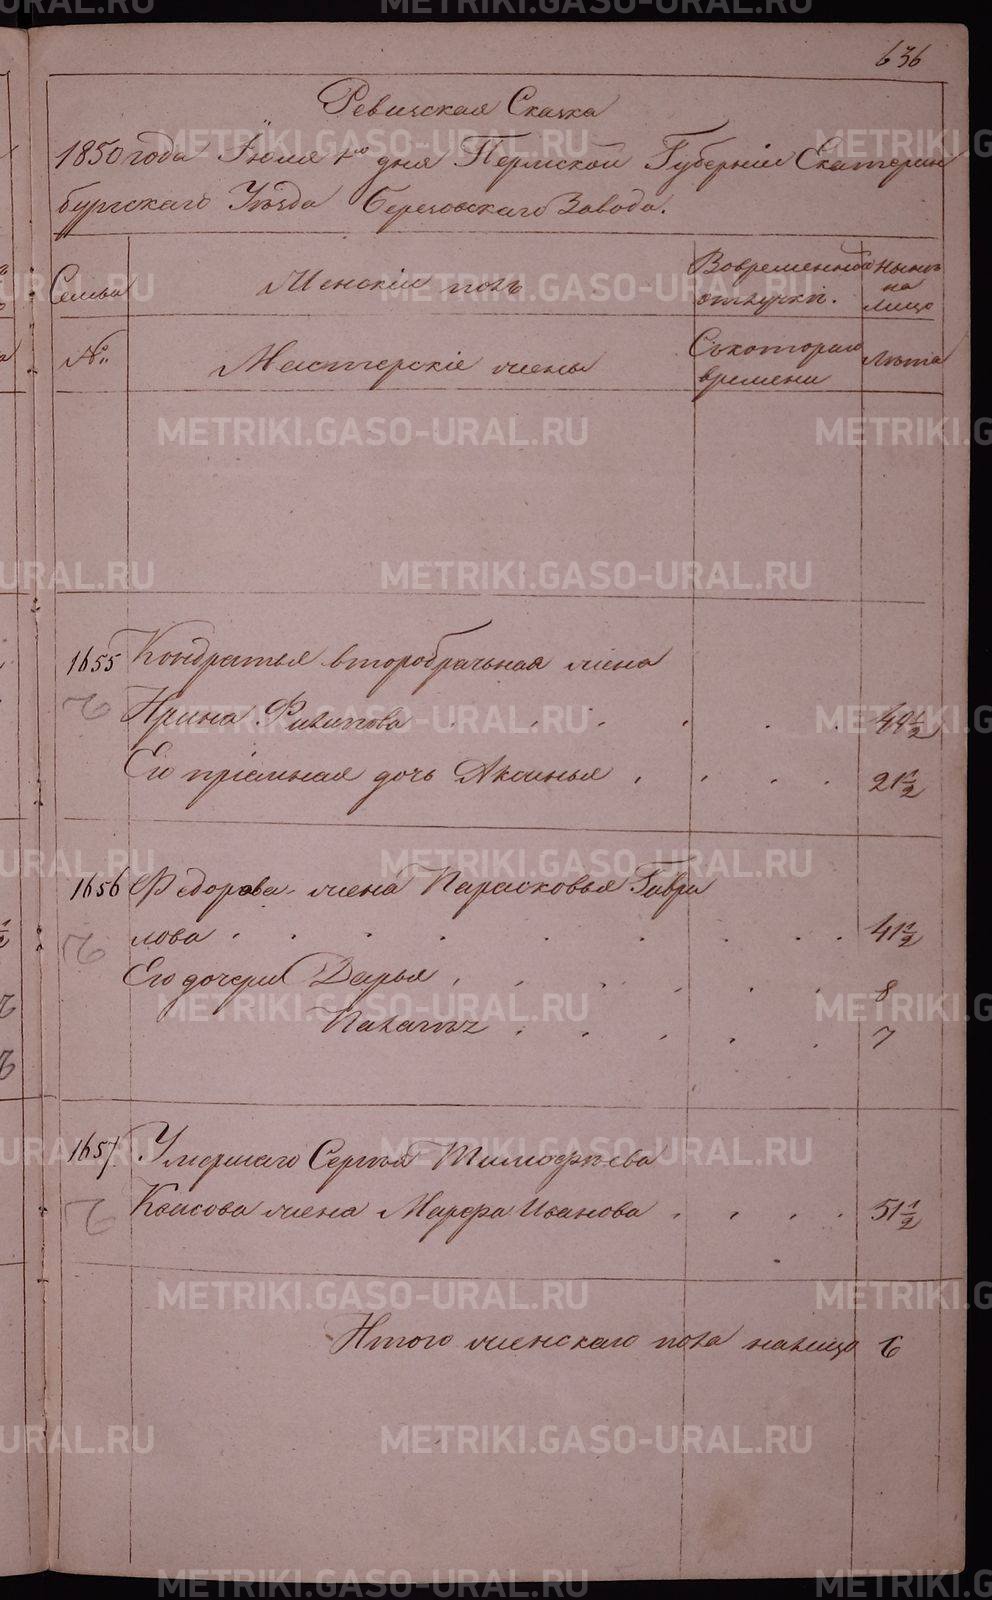 636
Ревижская Сказка
1850 года Июля 1го дня Пермской Губерніи Екатерин
бургскаго Уѣзда Березовскаго Завода.
Семьи
Женскій полъ
Вовременной отлучкѣ.
Нынѣ на лицо
№
Мастерскіе жены
Съкотораго времени
Лѣта
1655 Кондратья второбрачьная жена
Ирина Филипова . . . . . . 44 1/2
Его пріемная дочь Аксинья . . . . 21 1/2
1656 Федорова жена Парасковья Гаври
лова . . . . . . . . 41 1/2
Его дочери Дарья . . . . . . 8
Палагѣя . . . . . 7
1657 Умершаго Сергѣя Тимофѣева
Квасова жена Марфа Иванова . . . . 51 1/2
Итого женскаго пола налицо 6
METRIKI.GASO-URAL.RU